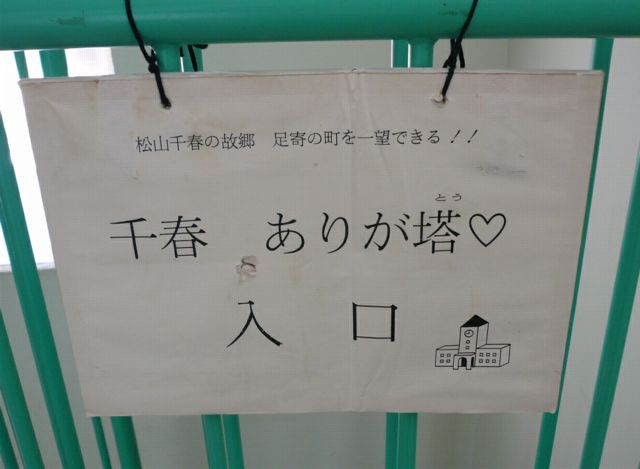 松山千春の故郷　足寄の町を一望できる！！
とう
千春　ありが塔♡
入　口